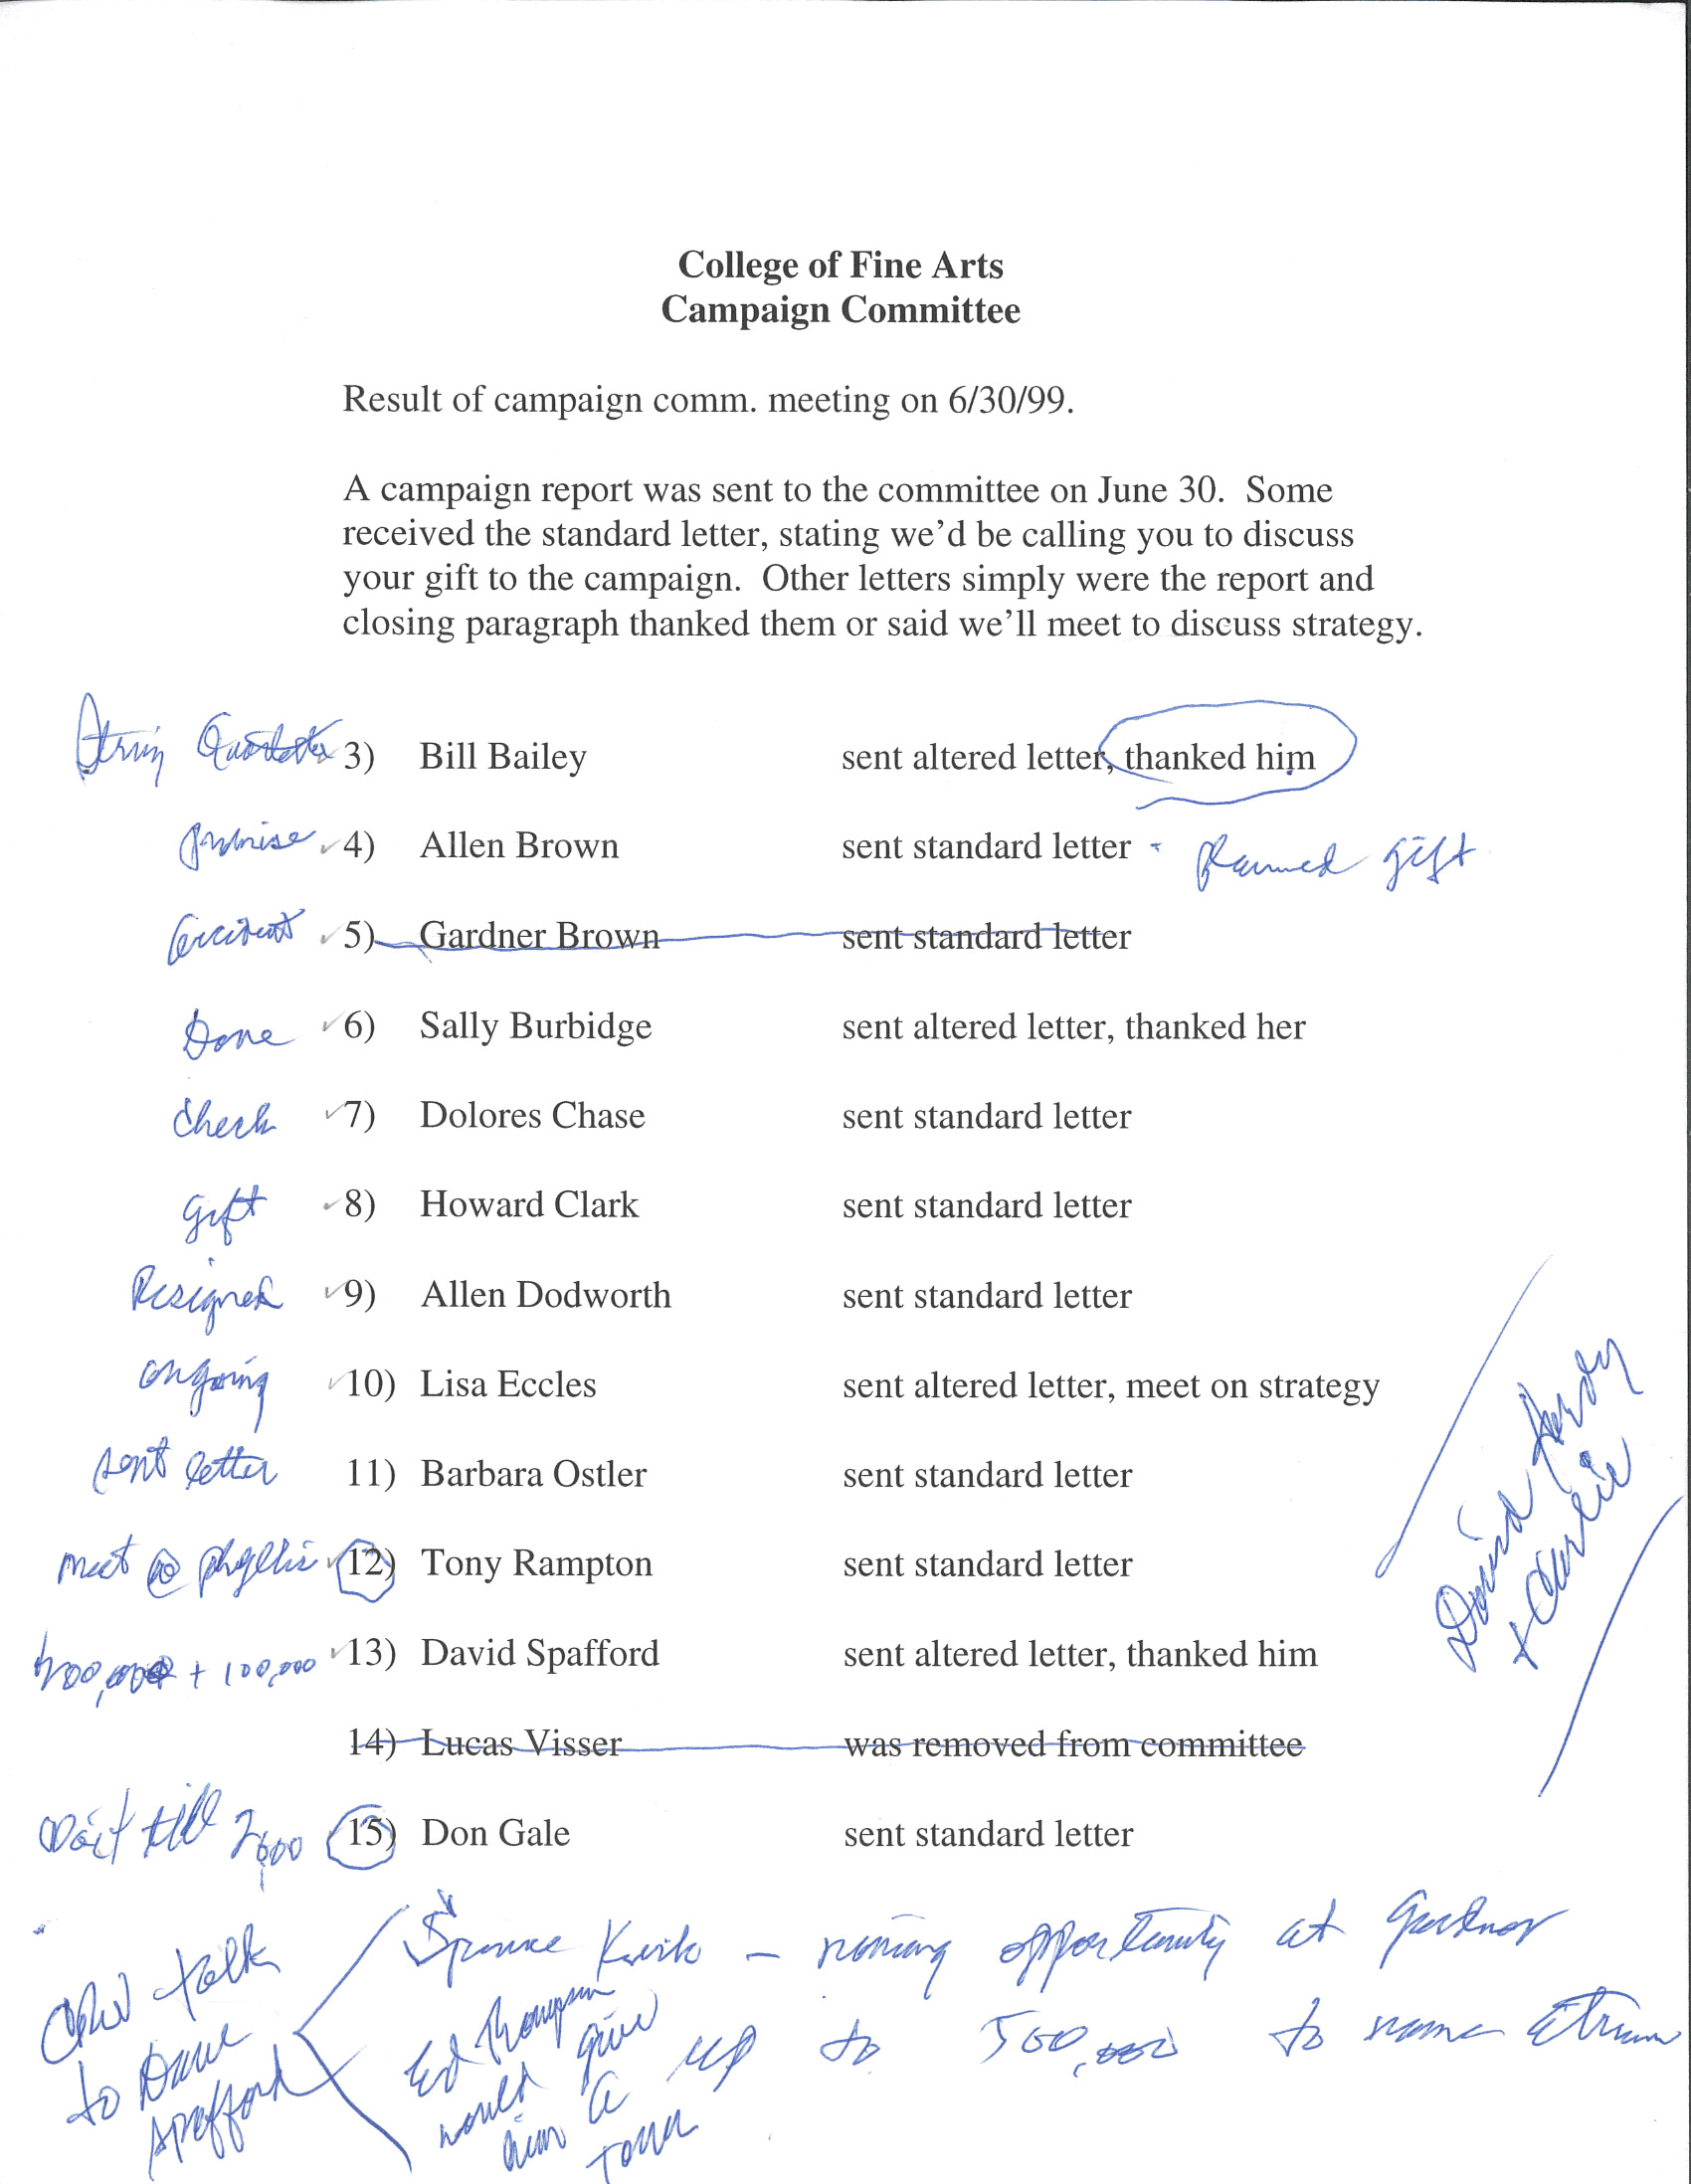 College of Fine Arts
Campaign Committee
Result of campaign comm. meeting on 6/30/99.
A campaign report was sent to the committee on June 30. Some
received the standard letter, stating we'd be calling you to discuss
your gift to the campaign. Other letters simply were the report and
closing paragraph thanked them or said we'll meet to discuss strategy.
String 3) Bill Bailey sent altered letter, thanked him
promise ✓ 4) Allen Brown sent standard letter - planned gift
✓ 5) Gardner Brown sent standard letter
Done ✓ 6) Sally Burbidge sent altered letter, thanked her
Check ✓ 7) Dolores Chase sent standard letter
gift ✓ 8) Howard Clark sent standard letter
Resigned ✓ 9) Allen Dodworth sent standard letter
ongoing ✓ 10) Lisa Eccles sent altered letter, meet on strategy
sent letter 11) Barbara Ostler sent standard letter
meet @ Phyllis ✓ 12) Tony Rampton sent standard letter
+ 100,000 ✓ 13) David Spafford sent altered letter, thanked him
14) Lucas Visser was removed from committee
Wait till 2000 15) Don Gale sent standard letter
David Hardy
+ Carlie
talk
to Dave
Spafford
Kirk - naming opportunity at Gardner
up to 500,000 to name Atrium
Ed Thompson
would give
him a
tour